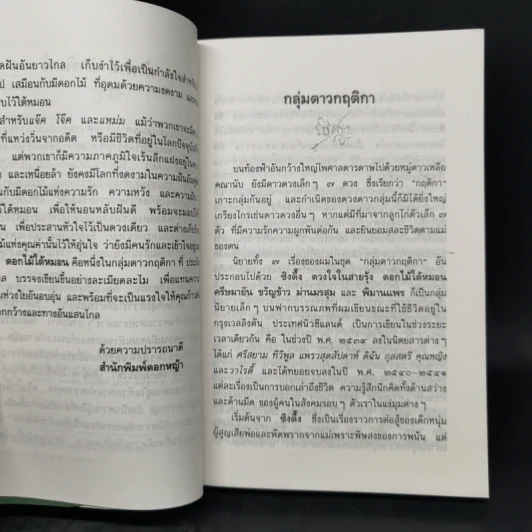 ดฝันอันยาวไกล เก็บงำไว้เพื่อเป็นกำลังใจสำหรับ
ป เสมือนกับมีดอกไม้ ที่อุดมด้วยความงดงาม
บไว้ใต้หมอน
สำหรับแจ๊ค โจ๊ค และแหม่ม แม้ว่าพวกเขาจะมี
ที่แหว่งวิ่นจากอดีต หรือมีชีวิตที่อยู่ในโลกปัจจุบัน
แต่พวกเขาก็มีความภาคภูมิใจเร้นลึกแฝงอยู่ใน
และเหนื่อยล้า ยังคงมีโลกที่งดงามในความฝันอัน
นกับมีดอกไม้แห่งความรัก ความหวัง และความฝัน
ใต้หมอน เพื่อให้นอนหลับฝันดี พร้อมจะมอบให้
น เพื่อประสานหัวใจให้เป็นดวงเดียว และต่าง
แห่งคุณค่านั้นไว้ให้อุ่นใจ ว่ายังมีคนรักและเข้าใจอยู่
ดอกไม้ใต้หมอน คือหนึ่งในกลุ่มดาวกฤติกา ที่
ล บรรจงเขียนขึ้นอย่างละเมียดละไม เพื่อแทนความ
ห่วงใยอันอบอุ่น และพร้อมที่จะเป็นแรงใจให้คุณก้าว
ลกกว้างและทางอันแสนไกล
ด้วยความปรารถนาดี
สำนักพิมพ์ดอกหญ้า
กลุ่มดาวกฤติกา
บนท้องฟ้าอันกว้างใหญ่ไพศาลดารดาษไปด้วยหมู่ดาวเหลือ
คณานับ ยังมีดาวดวงเล็ก ๆ ๗ ดวง ซึ่งเรียกว่า “กฤติกา”
เกาะกลุ่มกันอยู่ และกำเนิดของดวงดาวกลุ่มนี้ก็มิได้ยิ่งใหญ่
เกรียงไกรเช่นดาวดวงอื่น ๆ หากแต่มีที่มาจากลูกไก่ตัวเล็ก ๗
ตัว ที่มีความรักความผูกพันต่อกัน และยินยอมสละชีวิตตามแม่
ของตน
นิยายทั้ง ๗ เรื่องของผมในชุด “กลุ่มดาวกฤติกา” อัน
ประกอบไปด้วย ซิงตึ๊ง ดวงใจในสายรุ้ง ดอกไม้ใต้หมอน
ครีษมายัน ขวัญข้าว ม่านมรสุม และ พิมานแพร ก็เป็นกลุ่ม
นิยายเล็ก ๆ บนฟากบรรณพิภพที่ผมเขียนขณะที่ใช้ชีวิตอยู่ใน
กรุงเวลลิงตัน ประเทศนิวซีแลนด์ เป็นการเขียนในช่วงระยะ
เวลาเดียวกัน คือ ในช่วงปี พ.ศ. ๒๕๓๙ ลงในนิตยสารต่าง ๆ
ได้แก่ ศรีสยาม ทีวีพูล แพรวสุดสัปดาห์ ดิฉัน กุลสตรี คุณหญิง
และวาไรตี้ และได้ทยอยจบลงในปี พ.ศ. ๒๕๔๐-๒๕๔๑
แต่ละเรื่องเป็นการบอกเล่าถึงชีวิต ความรู้สึกนึกคิดทั้งด้านสว่าง
และด้านมืด ของผู้คนในสังคมรอบ ๆ ตัวเราในแง่มุมต่าง ๆ
เริ่มต้นจาก ซิงตึ๊ง ซึ่งเป็นเรื่องราวการต่อสู้ของเด็กหนุ่ม
ผู้สูญเสียพ่อและพลัดพรากจากแม่เพราะพิษสงของการพนัน แต่